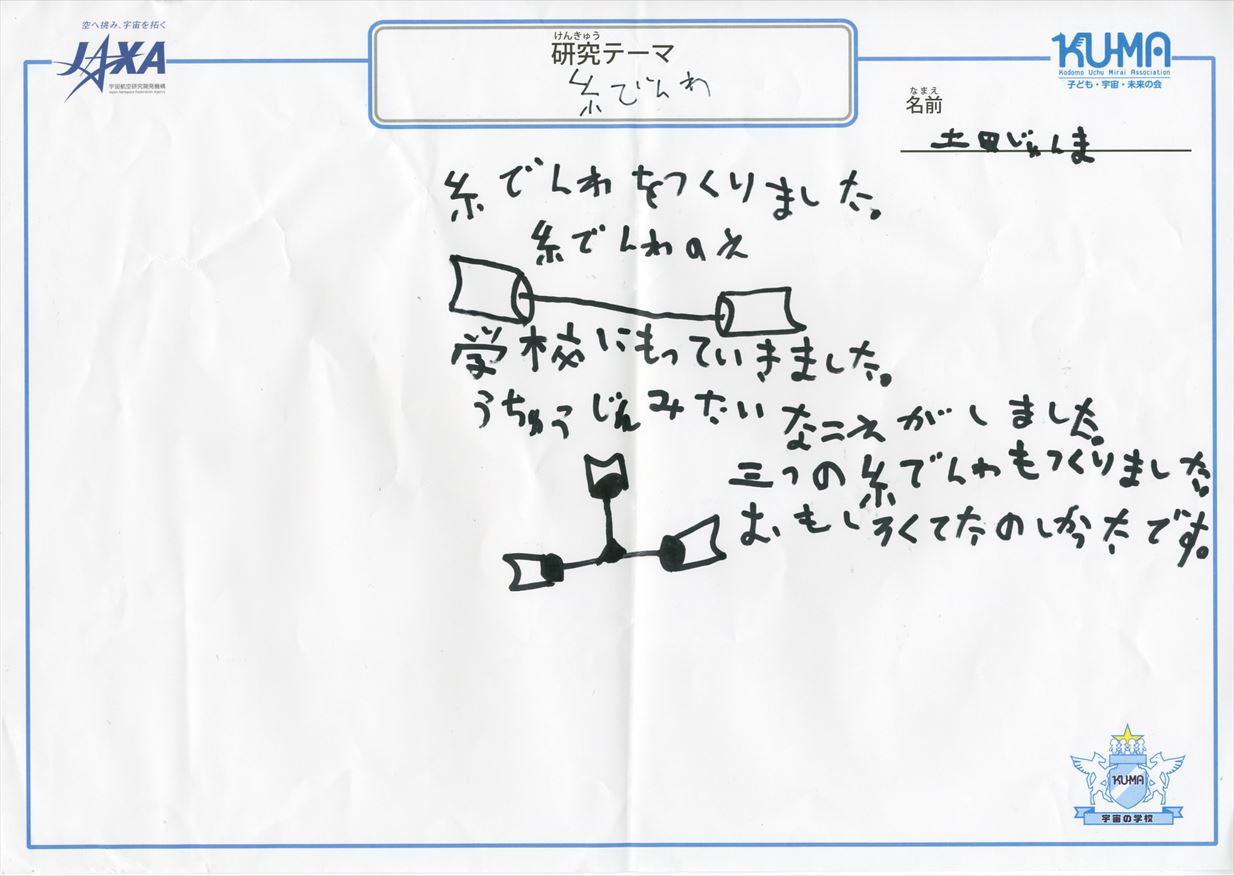 空へ挑み、宇宙を拓く
JAXA
宇宙航空研究開発機構
Japan Aerospace Exploration Agency
けんきゅう
研究テーマ
糸でんわ
KU-MA
Kodomo Uchu Mirai Association
子ども・宇宙・未来の会
なまえ
名前
土田じゅんま
糸でんわをつくりました。
糸でんわのえ
学校にもっていきました。
うちゅうじんみたいなこえがしました。
三つの糸でんわもつくりました。
おもしろくてたのしかったです。
KU-MA
宇宙の学校